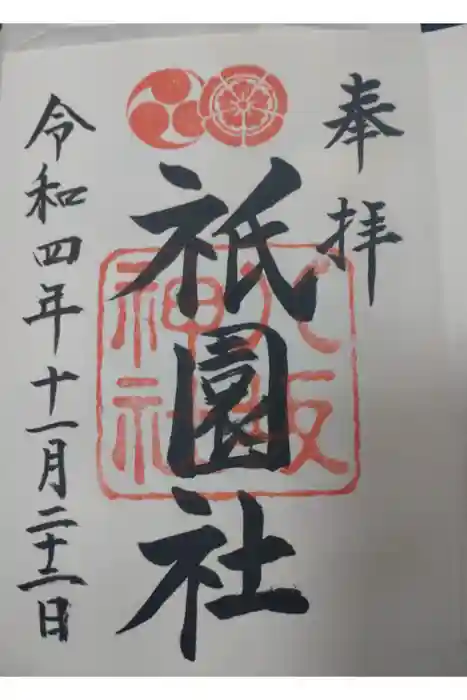 奉拝
祇園社
八坂神社
令和四年十一月二十二日